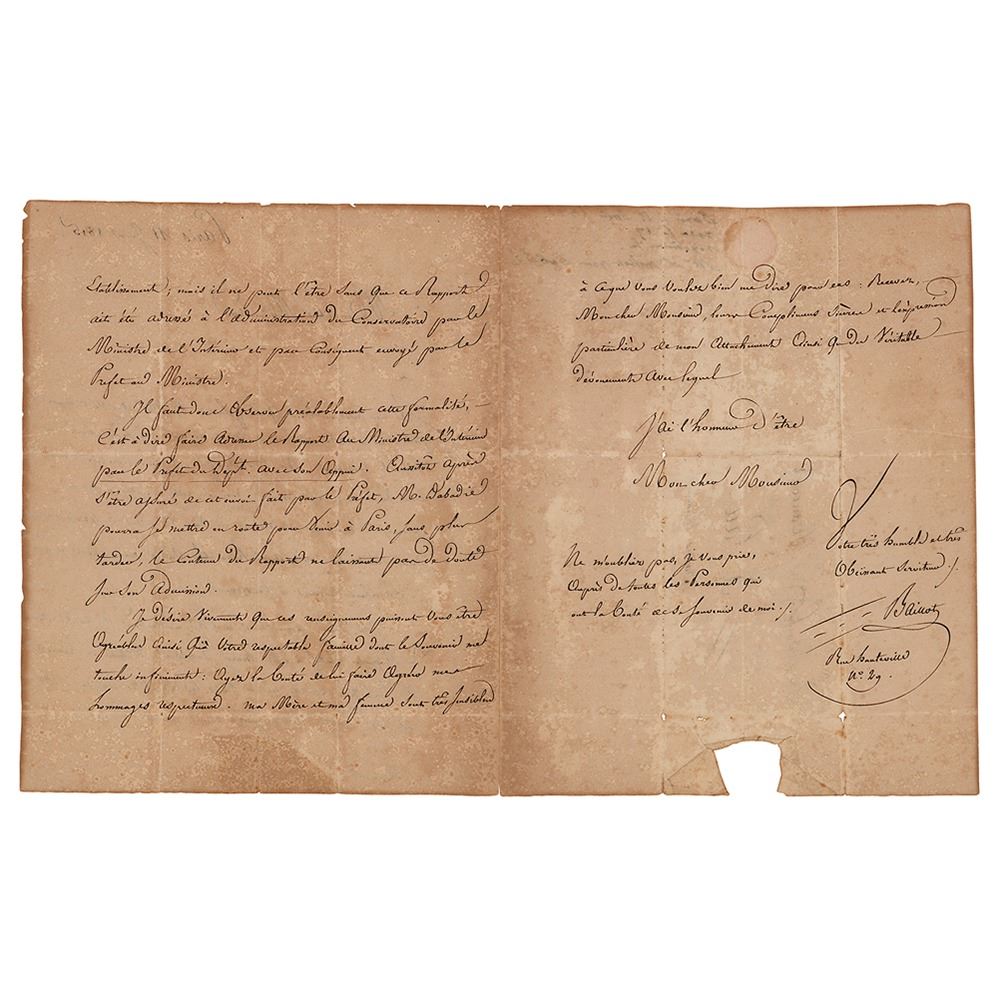 Etablissement; mais il ne peut l'être sans que ce Rapport
ait été adressé à l'administration du Conservatoire par le
Ministre de l'Intérieur et par Conséquent envoyé par le
Préfet au Ministre.
Il faut donc Observer préalablement cette formalité,
c'est à dire faire adresser le Rapport au Ministre de l'Intérieur
par le Préfet du Dépt. avec Son Appui. Aussitôt après
S'être assuré de cet envoi fait par le Préfet, M. Dabadie
pourra se mettre en route pour Venir à Paris, sans plus
tarder, le Contenu du Rapport ne laissant pas de doute
sur Son Admission.
Je désire Vivement que ces renseignemens puissent Vous être
Agréables ainsi qu'à Votre respectable famille dont le Souvenir me
touche infiniment: Ayez la Bonté de lui faire Agréer mes
hommages respectueux. ma Mère et ma femme Sont très Sensibles
à ce que Vous Voulez bien me dire pour elles: Recevez,
Mon cher Monsieur, leurs Complimens Sincères et l'expression
particulière de mon Attachement Ainsi que du Véritable
dévouement Avec lequel
J'ai l'honneur d'être
Mon cher Monsieur
Votre très humble et très
Obéissant Serviteur ./.
Baillot
Rue hauteville
No. 29.
Ne m'oubliez pas, je Vous prie,
Auprès de toutes les Personnes qui
ont la Bonté de se Souvenir de moi ./.
Paris 1815